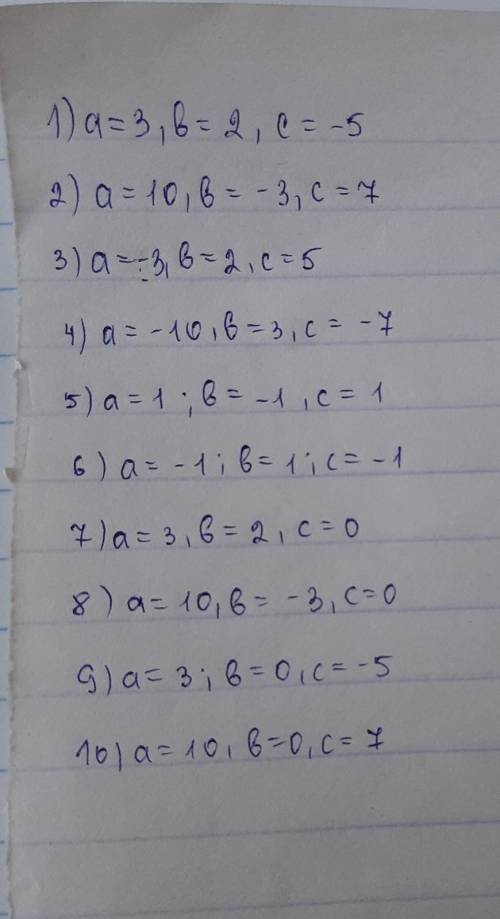 1) a = 3, в = 2, c = -5
2) a = 10, в = -3, c = 7
3) a = -3, в = 2, c = 5
4) a = -10, в = 3, c = -7
5) a = 1 ; в = -1, c = 1
6) a = -1 ; в = 1 ; c = -1
7) a = 3, в = 2, c = 0
8) a = 10, в = -3, c = 0
9) a = 3 ; в = 0, c = -5
10) a = 10, в = 0, c = 7